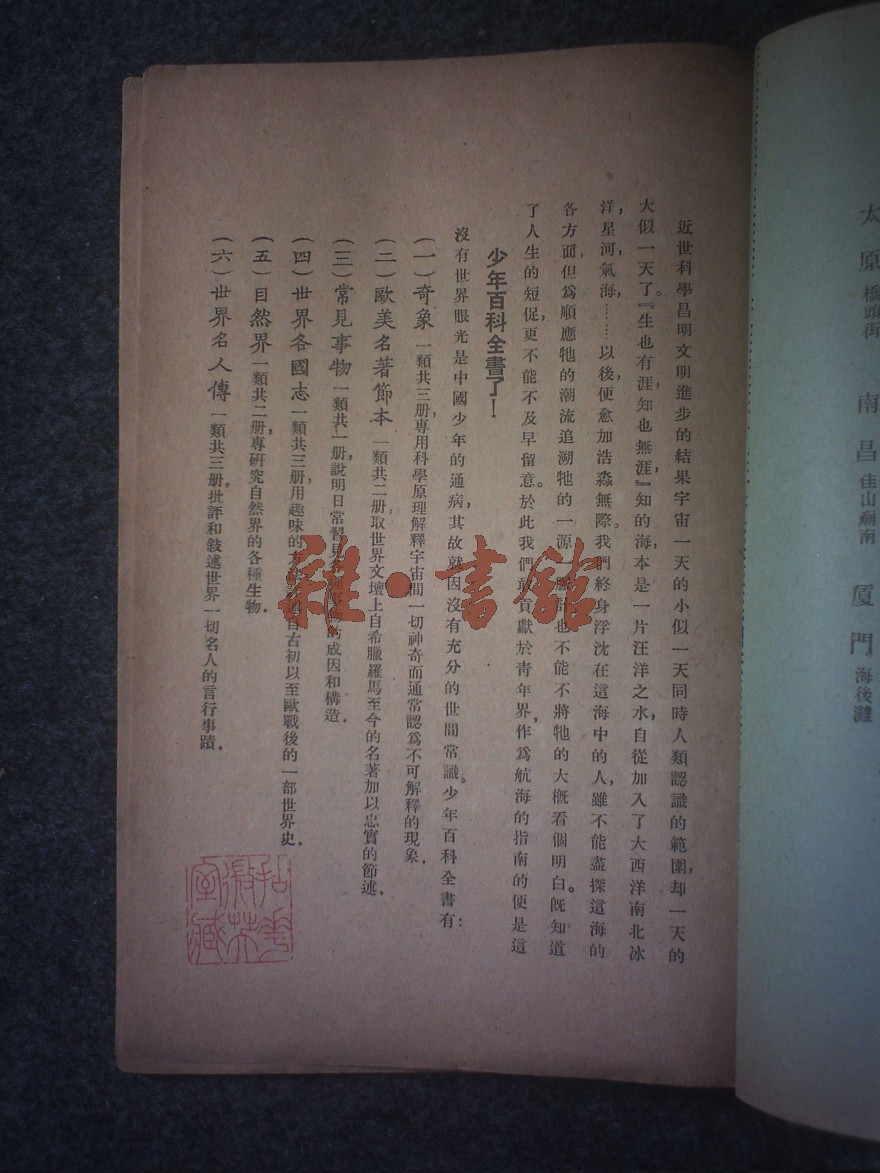 太原 橋頭街 南昌 佳山廟南 廈門 海後灘
近世科學昌明文明進步的結果宇宙一天的小似一天同時人類認識的範圍,却一天的
大似一天了。『生也有涯,知也無涯』知的海,本是一片汪洋之水,自從加入了大西洋南北冰
洋,星河,氣海,……以後,便愈加浩淼無際。我們終身浮沈在這海中的人,雖不能盡探這海的
各方面,但爲順應牠的潮流追溯牠的一源一脈計,也不能不將牠的大概看個明白。既知道
了人生的短促,更不能不及早留意。於此我們敢貢獻於青年界,作爲航海的指南的便是這
少年百科全書了!
沒有世界眼光是中國少年的通病,其故就因沒有充分的世間常識。少年百科全書有:
(一)奇象 一類共三册,專用科學原理解釋宇宙間一切神奇而通常認爲不可解釋的現象.
(二)歐美名著節本 一類共二册,取世界文壇上自希臘羅馬至今的名著加以忠實的節述.
(三)常見事物 一類共一册,說明日常習見的成因和構造.
(四)世界各國志 一類共三册,用趣味的方自古初以至歐戰後的一部世界史.
(五)自然界 一類共二册,專研究自然界的各種生物.
(六)世界名人傳 一類共三册,批評和敍述世界一切名人的言行事蹟.
雜·書館